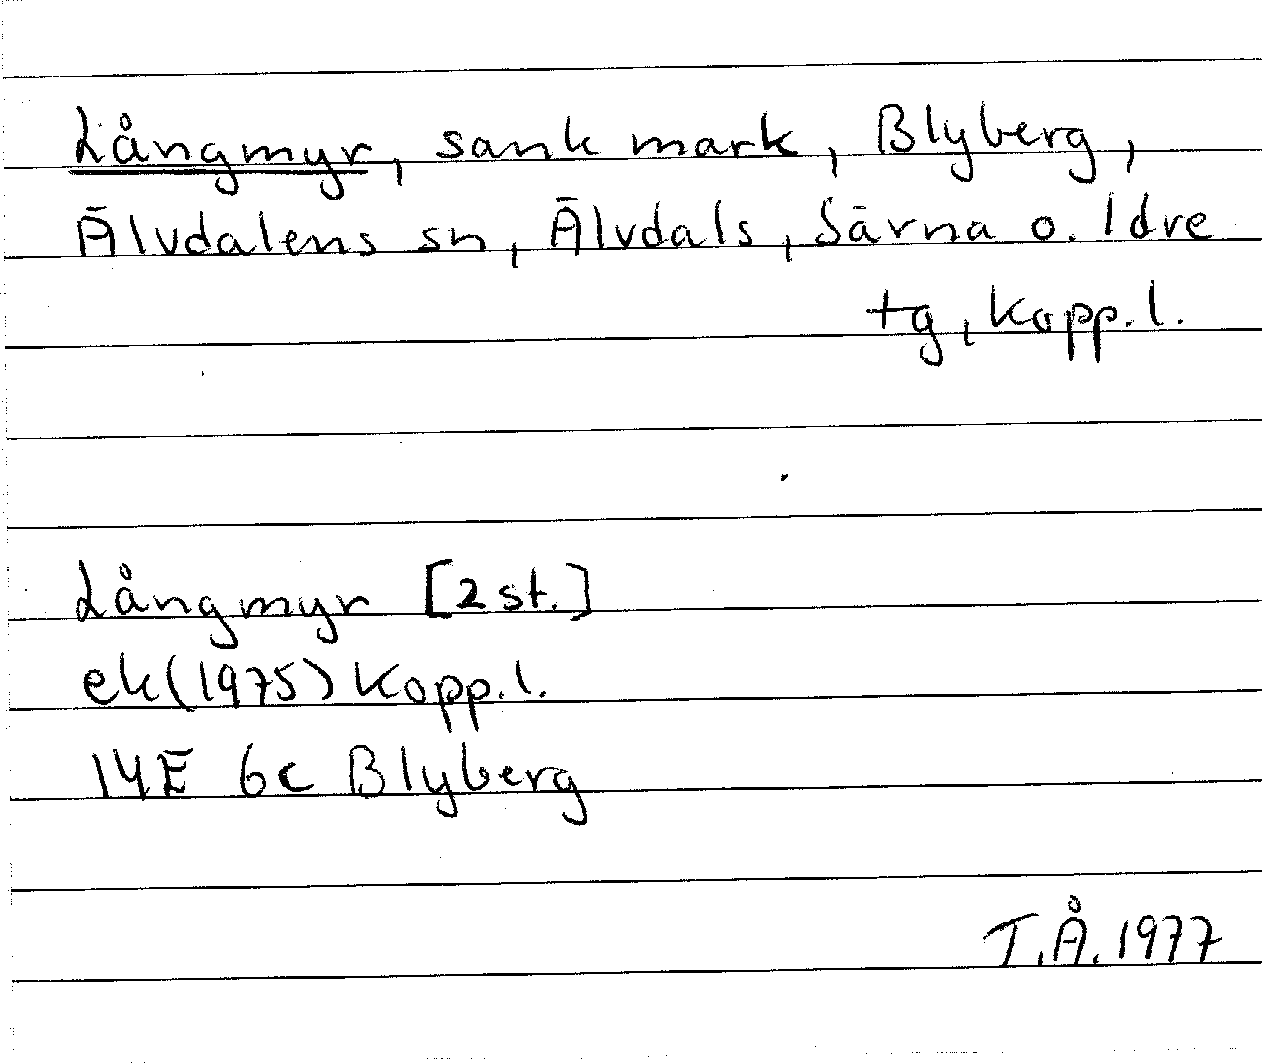 Långmyr, sank mark, Blyberg,
Älvdalens sn, Älvdals, Särna o. Idre
tg, Kopp.l.
Långmyr [2 st.]
ek(1975) Kopp.l.
14E 6c Blyberg
T.Å. 1977